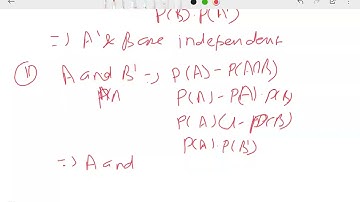 P(B).P(A')
=> A' & B are independent
(ii) A and B' => P(A) - P(A∩B)
P(A) - P(A).P(B)
P(A)(1-P(B)
P(A).P(B')
=> A and